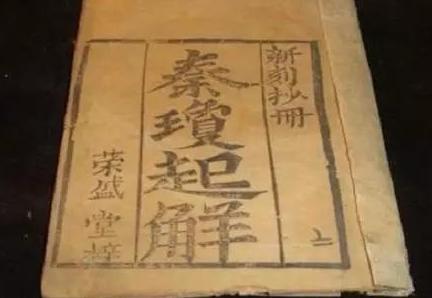 新刻抄冊
秦瓊起解
荣盛堂梓